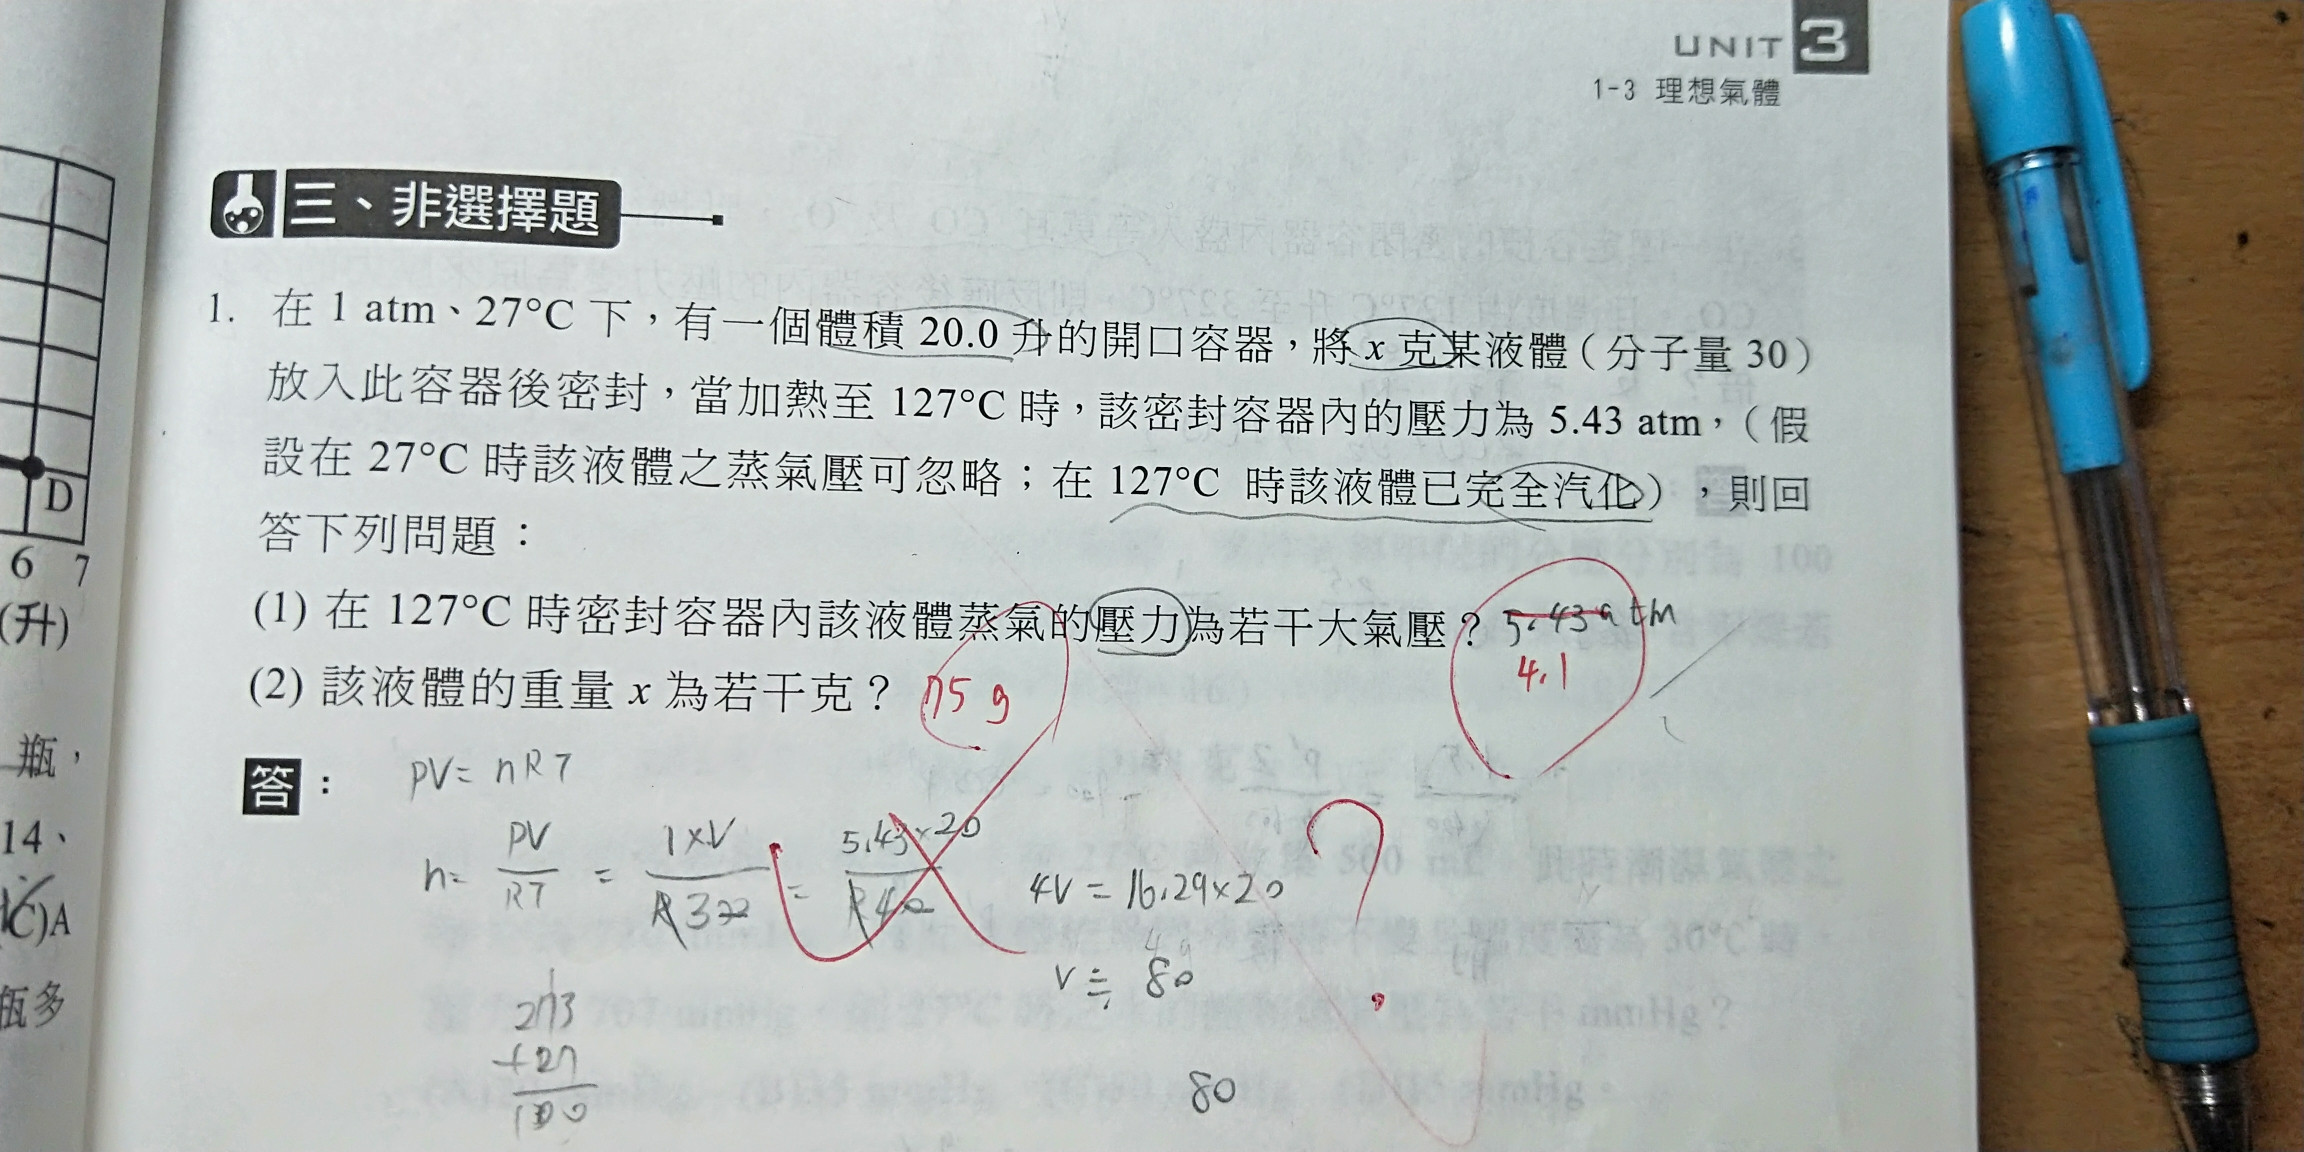 UNIT 3
1-3 理想氣體
三、非選擇題
1. 在 1 atm、27°C 下，有一個體積 20.0 升的開口容器，將 x 克某液體（分子量 30）
放入此容器後密封，當加熱至 127°C 時，該密封容器內的壓力為 5.43 atm，（假
設在 27°C 時該液體之蒸氣壓可忽略；在 127°C 時該液體已完全汽化），則回
答下列問題：
(1) 在 127°C 時密封容器內該液體蒸氣的壓力為若干大氣壓？ 5.43atm
4.1
(2) 該液體的重量 x 為若干克？ 75 g
答：
PV= nRT
n= PV/RT = 1×V/R300 = 5.43×20/R400
4V = 16.29×20
V ≒ 80
273
+27
300
80
?
D
6 7
(升)
瓶，
14、
(C)A
瓶多